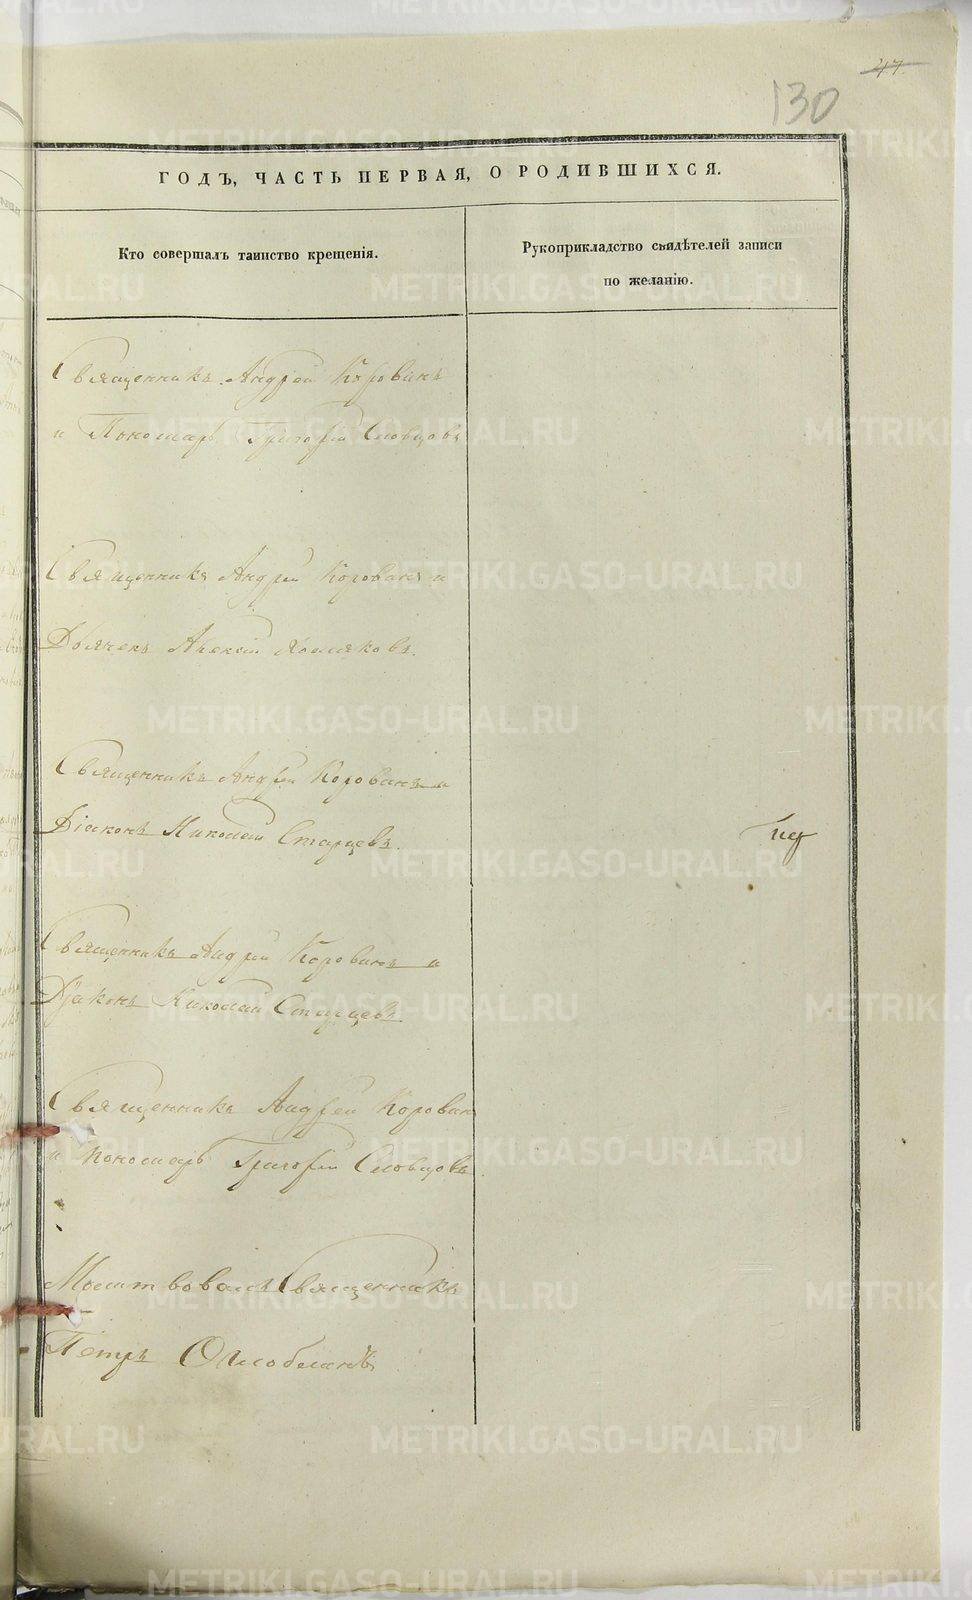 47.
130
ГОДЪ, ЧАСТЬ ПЕРВАЯ, О РОДИВШИХСЯ.
Кто совершалъ таинство крещенія.
Рукоприкладство свидѣтелей записи
по желанію.
Священникъ Андрей Коровинъ
и Пономарь Григорій Словцовъ
Священникъ Андрей Коровинъ и
Дьячекъ Алексій Хомяковъ.
Священникъ Андрей Коровинъ и
Діаконъ Николай Старцевъ.
Священникъ Андрей Коровинъ и
Діаконъ Николай Старцевъ.
Священникъ Андрей Коровинъ
и Пономарь Григорій Словцовъ.
Молитвовалъ Священникъ
Петръ
METRIKI.GASO-URAL.RU